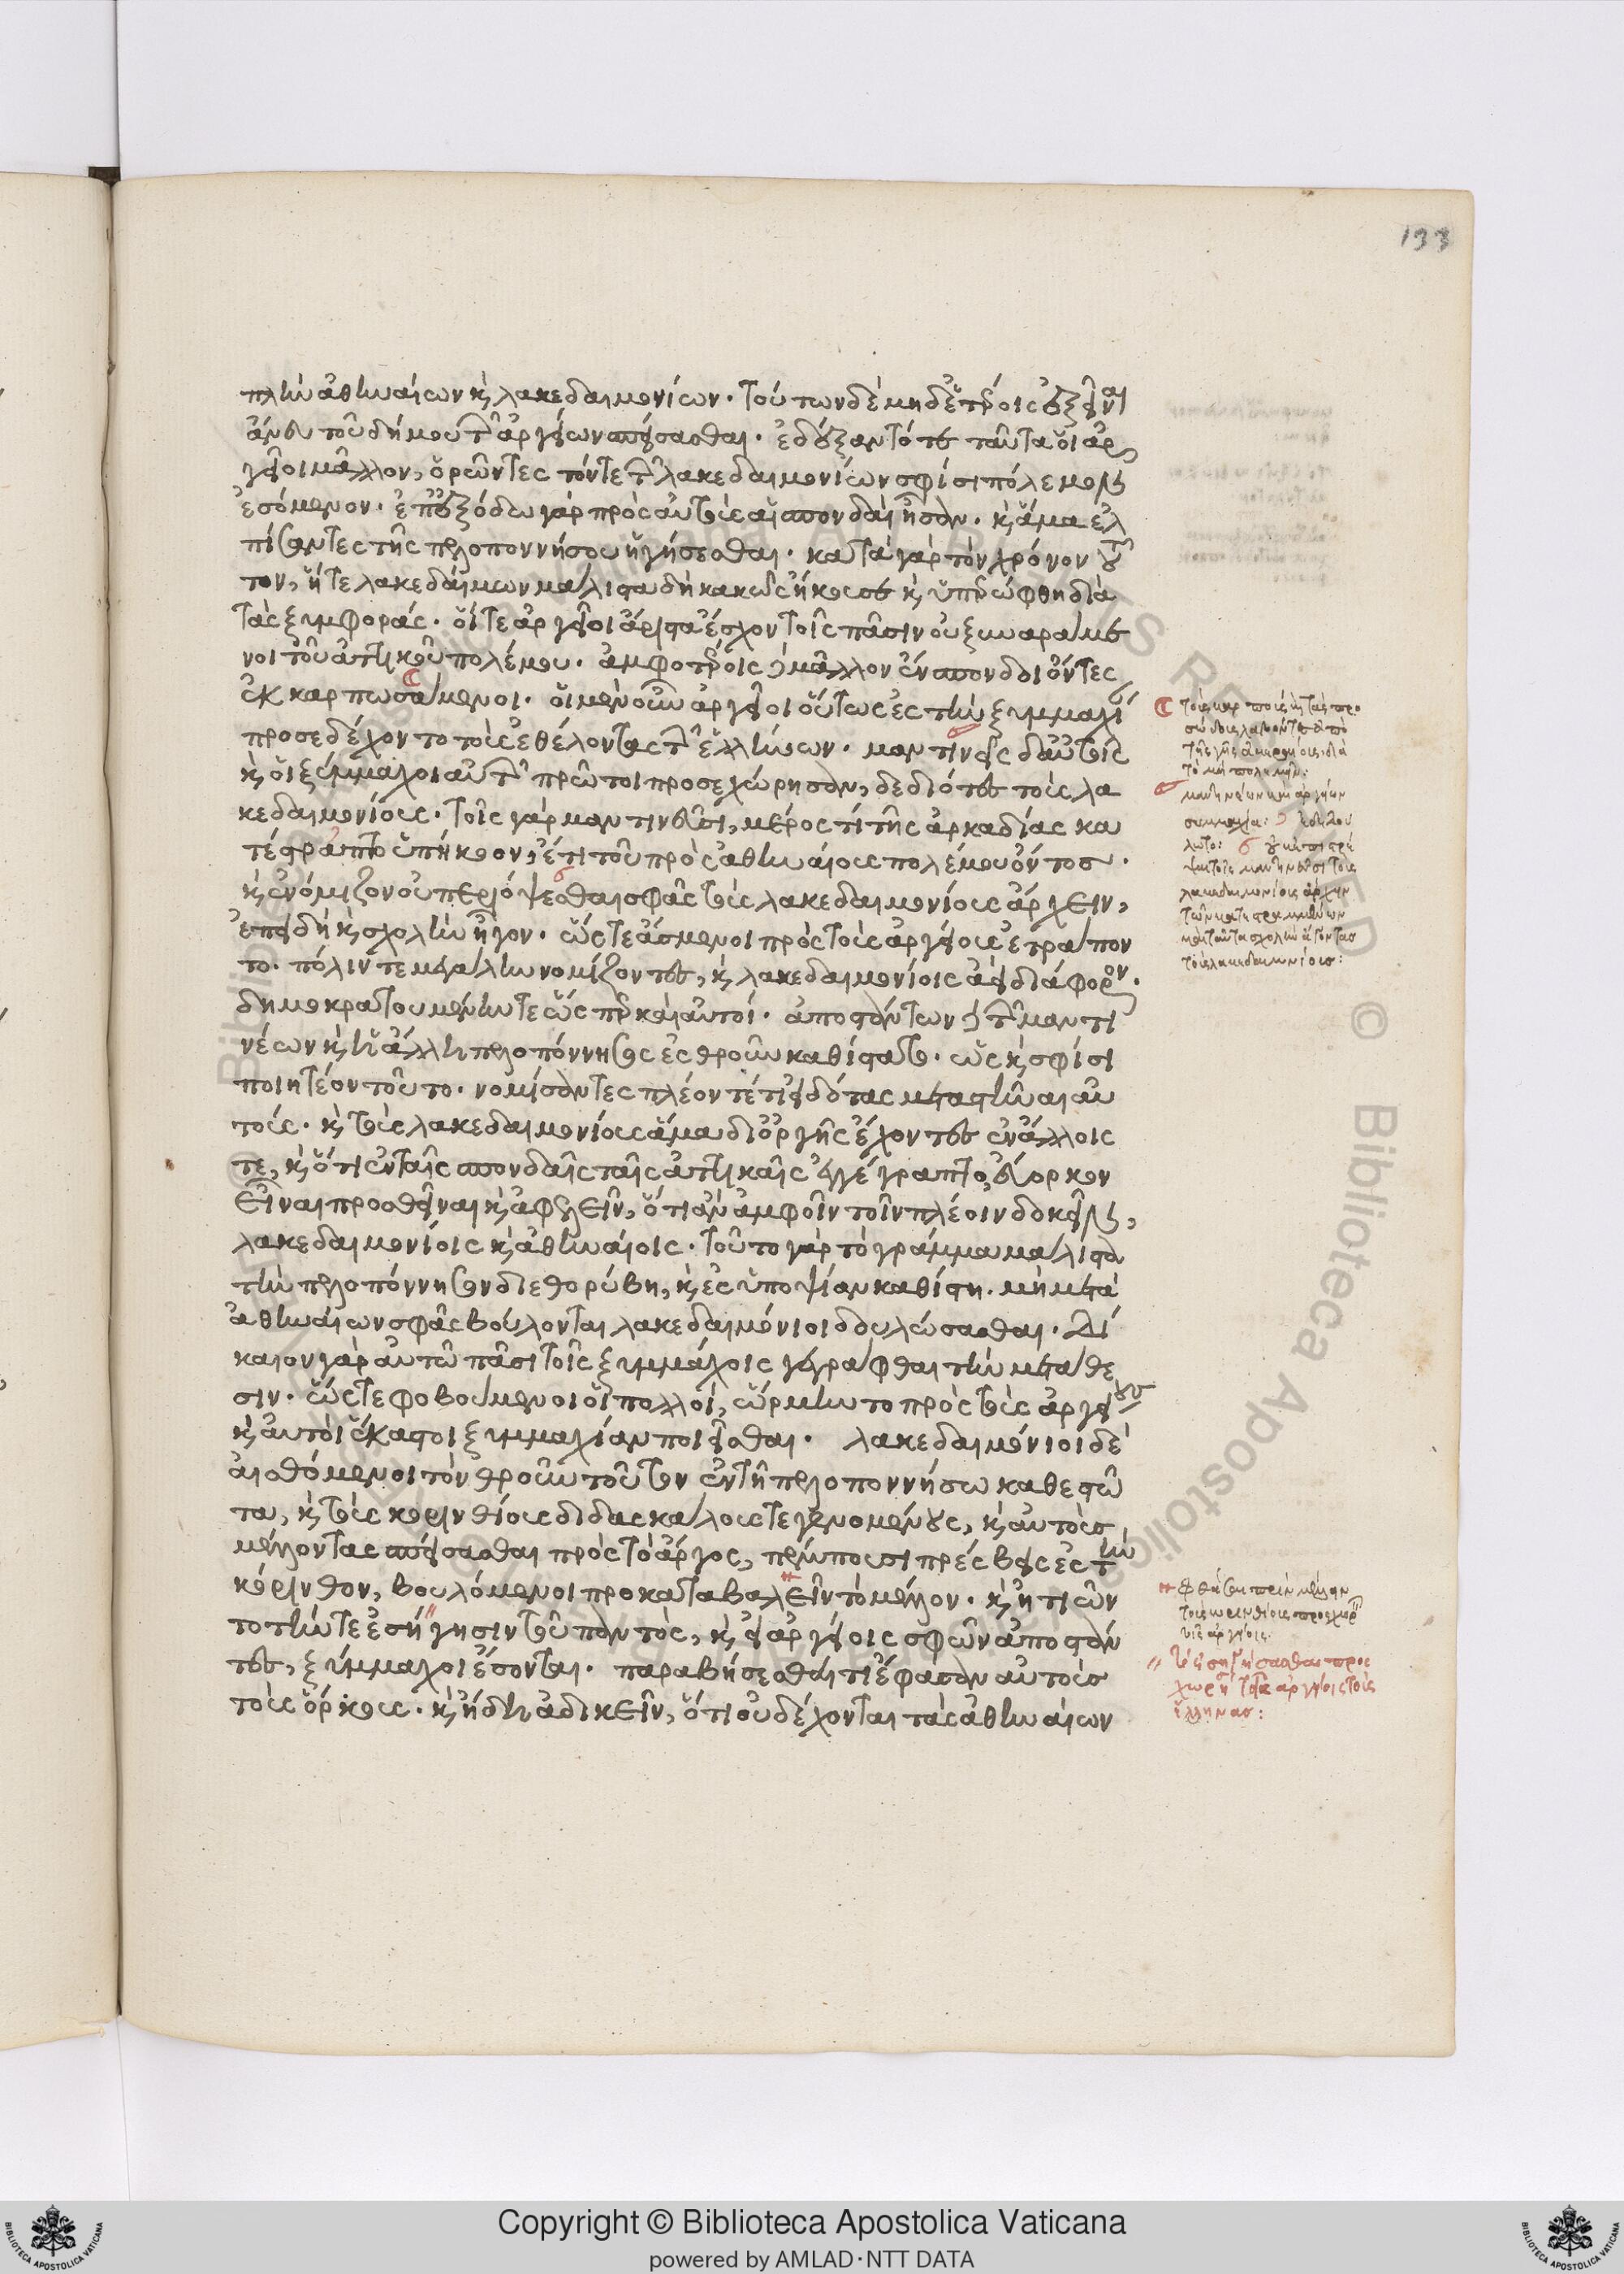 133
πλὴν ἀθηναίων καὶ λακεδαιμονίων· τούτων δὲ μηδετέροις ἐξεῖναι
ἄνευ τοῦ δήμου τῶν ἀργείων σπείσασθαι. ἔδοξάν τότε ταῦτα· οἱ ἀρ
γεῖοι μᾶλλον, ὁρῶντες τόν τε τῶν λακεδαιμονίων σφίσι πόλεμον
ἐσόμενον· ἐπ' ἐξόδω γὰρ πρὸς αὐτοὺς αἱ σπονδαὶ ἦσαν. καὶ ἅμα ἐλ
πίσαντες τῆς πελοποννήσου ἡγήσεσθαι. κατὰ γὰρ τὸν χρόνον τοῦ
τον, ἥ τε λακεδαίμων μάλιστα δὴ κακῶς ἤκουσε καὶ ὑπερώφθη διὰ
τὰς ξυμφοράς. οἵ τε ἀργεῖοι ἄριστα ἔσχον τοῖς πᾶσιν οὐ ξυναράμε
νοι τοῦ ἀττικοῦ πολέμου. ἀμφοτέροις δὲ μᾶλλον ἔνσπονδοι ὄντες
ἐκκαρπωσάμενοι. οἱ μὲν οὖν ἀργεῖοι οὕτως ἐς τὴν ξυμμαχί
προσεδέχοντο τοὺς ἐθέλοντας τῶν ἑλλήνων. μαντινεῖς δ' αὐτοῖς
καὶ οἱ ξύμμαχοι αὐτῶν πρῶτοι προσεχώρησαν, δεδιότες τοὺς λα
κεδαιμονίους. τοῖς γὰρ μαντινεῦσι, μέρος τί τῆς ἀρκαδίας κα
τέστραπτο ὑπήκοον, ἔτι τοῦ πρὸς ἀθηναίους πολέμου ὄντος.
καὶ ἐνόμιζον οὐ περιόψεσθαι σφᾶς τοὺς λακεδαιμονίους ἄρχειν,
ἐπειδὴ καὶ σχολὴν ἦγον. ὥς τε ἄσμενοι πρὸς τοὺς ἀργείους ἐτράπον
το. πόλιν τε μεγάλην νομίζοντες, καὶ λακεδαιμονίοις ἀεὶ διάφορον.
δημοκρατουμένην τε ὥσπερ καὶ αὐτοί. ἀποστάντων δὲ τῶν μαντι
νέων καὶ ἡ ἄλλη πελοπόννησος ἐς θροῦν καθίστατο. ὡς καὶ σφίσι
ποιητέον τοῦτο. νομίσαντες πλέον τέ τι εἰδότας μεταστῆναι αὐ
τούς. καὶ τοὺς λακεδαιμονίους ἅμα δι' ὀργῆς ἔχοντες ἐν ἄλλοις
τε, καὶ ὅτι ἐν ταῖς σπονδαῖς ταῖς ἀττικαῖς ἐγέγραπτο, εὔορκον
εἶναι προσθεῖναι καὶ ἀφελεῖν, ὅτι ἂν ἀμφοῖν τοῖν πλέοιν δοκεῖν,
λακεδαιμονίοις καὶ ἀθηναίοις. τοῦτο γὰρ τὸ γράμμα μάλιστα
τὴν πελοπόννησον διεθορύβη, καὶ ἐς ὑποψίαν καθίστη. μὴ μετὰ
ἀθηναίων σφᾶς βούλονται λακεδαιμόνιοι δουλώσασθαι. Δί
καιον γὰρ αὐτῶ πᾶσι τοῖς ξυμμάχοις γεγράφθαι τὴν μετάθε
σιν. ὥς τε φοβούμενοι οἱ πολλοί, ὥρμηντο πρὸς τοὺς ἀργείους
καὶ αὐτοὶ ἕκαστοι ξυμμαχίαν ποιεῖσθαι. λακεδαιμόνιοι δὲ
αἰσθόμενοι τὸν θροῦν τοῦτον ἐν τῆ πελοποννήσω καθεστῶ
τα, καὶ τοὺς κορινθίους διδασκάλους τε γενομένους, καὶ αὐτοὺς
μέλλοντας σπείσασθαι πρὸς τὸ ἄργος, πέμπουσι πρέσβεις ἐς τὴν
κόρινθον, βουλόμενοι προκαταβαλεῖν τὸ μέλλον. καὶ ἠτιῶν
το τήν τε ἐσήγησιν τοῦ παντὸς, καὶ εἰ ἀργείοις σφῶν ἀποστάν
τες, ξύμμαχοι ἔσονται. παραβήσεσθαί τι ἔφασαν αὐτοὺς
τοὺς ὅρκους. καὶ ἤδη ἀδικεῖν, ὅτι οὐ δέχονται τὰς ἀθηναίων
τοὺς καρποὺς ἢ τὰς προ
σόδους λαβόντες ἀπὸ
τῆς γῆς
τὸ μὴ πολεμεῖν:
μαντινέων καὶ ἀργείων
συμμαχία: ἐδεδού
λωτο:
μαντινεῦσι τοὺς
λακεδαιμονίους ἄρχειν
τῶν κατεστραμμένων
καὶ ταῦτα σχολὴν ἄγοντας
τοὺς λακεδαιμονίους:
τοὺς κορινθίους
τοῖς ἀργείοις.
τὸ εἰσηγήσασθαι προς
χωρῆσαι τοῖς ἀργείοις τοὺς
ἕλληνας:
Copyright © Biblioteca Apostolica Vaticana
powered by AMLAD·NTT DATA